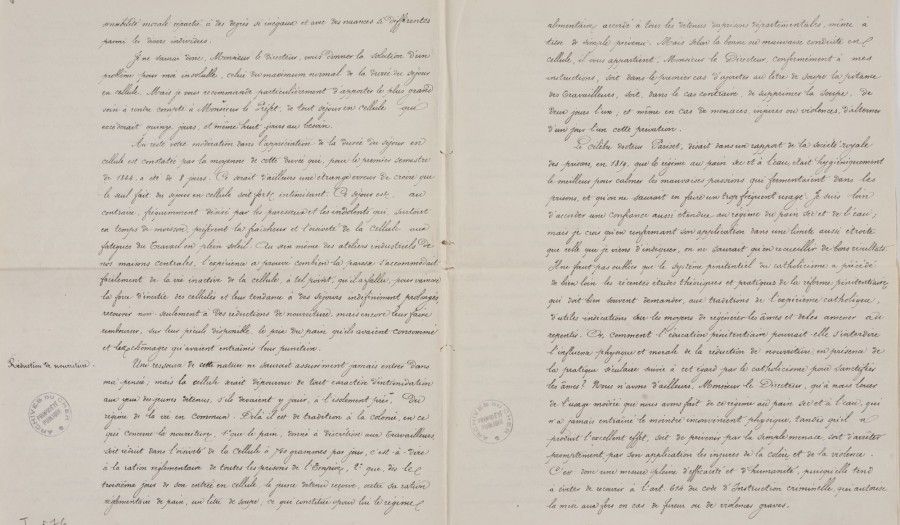 sensibilité morale répartie à des degrés si inégaux et avec des nuances si différentes
parmi les divers individus.
Je ne saurais donc, Monsieur le Directeur, vous donner la solution d'un
problème, pour moi insoluble, celui du maximum normal de la durée du séjour
en cellule. Mais je vous recommande particulièrement d'apporter le plus grand
soin à rendre compte à Monsieur le Préfet, de tout séjour en cellule qui
excéderait quinze jours, et même huit jours au besoin.
Au reste votre modération dans l'appréciation de la durée du séjour en
cellule est constatée par la moyenne de cette durée qui, pour le premier semestre
de 1864, a été de 8 jours. Ce serait d'ailleurs une étrange erreur de croire que
le seul fait du séjour en cellule soit fort intimidant. Ce séjour est, au
contraire, fréquemment désiré par les paresseux et les indolents qui, surtout
en temps de moisson, préfèrent la fraîcheur et l'oisiveté de la cellule aux
fatigues du travail en plein soleil. Au sein même des ateliers industriels de
nos maisons centrales, l'expérience a prouvé combien la paresse s'accommodait
facilement de la vie inactive de la cellule, à tel point, qu'il a fallu, pour vaincre
la force d'inertie des cellulés et leur tendance à des séjours indéfiniment prolongés
recourir non seulement à des réductions de nourriture, mais encore leur faire
rembourser, sur leur pécule disponible, le prix du pain qu'ils avaient consommé
et les chômages qu'avaient entraînés leur punition.
Réduction de nourriture.
Une ressource de cette nature ne saurait assurément jamais entrer dans
ma pensée; mais la cellule serait dépourvue de tout caractère d'intimidation
aux yeux des jeunes détenus, s'ils devaient y jouir, à l'isolement près, du
régime de la vie en commun. De là il est de tradition à la colonie, en ce
qui concerne la nourriture, 1° que le pain, donné à discrétion aux travailleurs
soit réduit dans l'oisiveté de la cellule à 750 grammes par jour, c'est-à-dire
à la ration réglementaire de toutes les prisons de l'Empire, 2° que dès le
troisième jour de son entrée en cellule, le jeune détenu reçoive, outre sa ration
réglementaire de pain, un litre de soupe, ce qui constitue pour lui le régime
ARCHIVES DU CHER
PROPRIÉTÉ PUBLIQUE
alimentaire accordé à tous les détenus des prisons départementales, même à
titre de simple prévenu. Mais selon la bonne ou mauvaise conduite en
cellule, il vous appartient, Monsieur le Directeur, conformément à mes
instructions, soit dans le premier cas d'ajouter au litre de soupe la pitance
des travailleurs, soit, dans le cas contraire, de supprimer la soupe, de
deux jours l'un, et même en cas de menaces, injures ou violences, d'alterner
d'un jour l'un cette privation.
Le célèbre docteur Pariset, disait dans un rapport de la société royale
des prisons, en 1819, que le régime au pain sec et à l'eau, était hygiéniquement
le meilleur pour calmer les mauvaises passions qui fermentaient dans les
prisons, et qu'on ne saurait en faire un trop fréquent usage. Je suis loin
d'accorder une confiance aussi étendue au régime du pain sec et de l'eau;
mais je crois qu'en renfermant son application dans une limite aussi étroite
que celle que je viens d'indiquer, on ne saurait qu'en recueillir de bons résultats.
Il ne faut pas oublier que le système pénitentiel du catholicisme a précédé
de bien loin les récentes études théoriques et pratiques de la réforme pénitentiaire
qui doit bien souvent demander, aux traditions de l'expérience catholique,
d'utiles indications sur les moyens de régénérer les âmes et de les amener au
repentir. Or, comment l'éducation pénitentiaire pourrait-elle s'interdire
l'influence physique et morale de la réduction de nourriture, en présence de
la pratique séculaire suivie à cet égard par le catholicisme pour sanctifier
les âmes? Nous n'avons d'ailleurs, Monsieur le Directeur, qu'à nous louer
de l'usage modéré que nous avons fait de ce régime au pain sec et à l'eau, qui
n'a jamais entraîné le moindre inconvénient physique, tandis qu'il a
produit l'excellent effet, soit de prévenir par la simple menace, soit d'arrêter
promptement par son application les injures de la colère et de la violence.
C'est donc une mesure pleine d'efficacité et d'humanité, puisqu'elle tend
à éviter de recourir à l'art. 614 du code d'Instruction criminelle, qui autorise
la mise aux fers en cas de fureur ou de violences graves.
ARCHIVES DU CHER
PROPRIÉTÉ PUBLIQUE